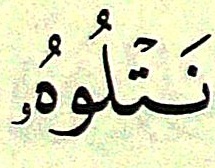 نَتْلُوهُۥ